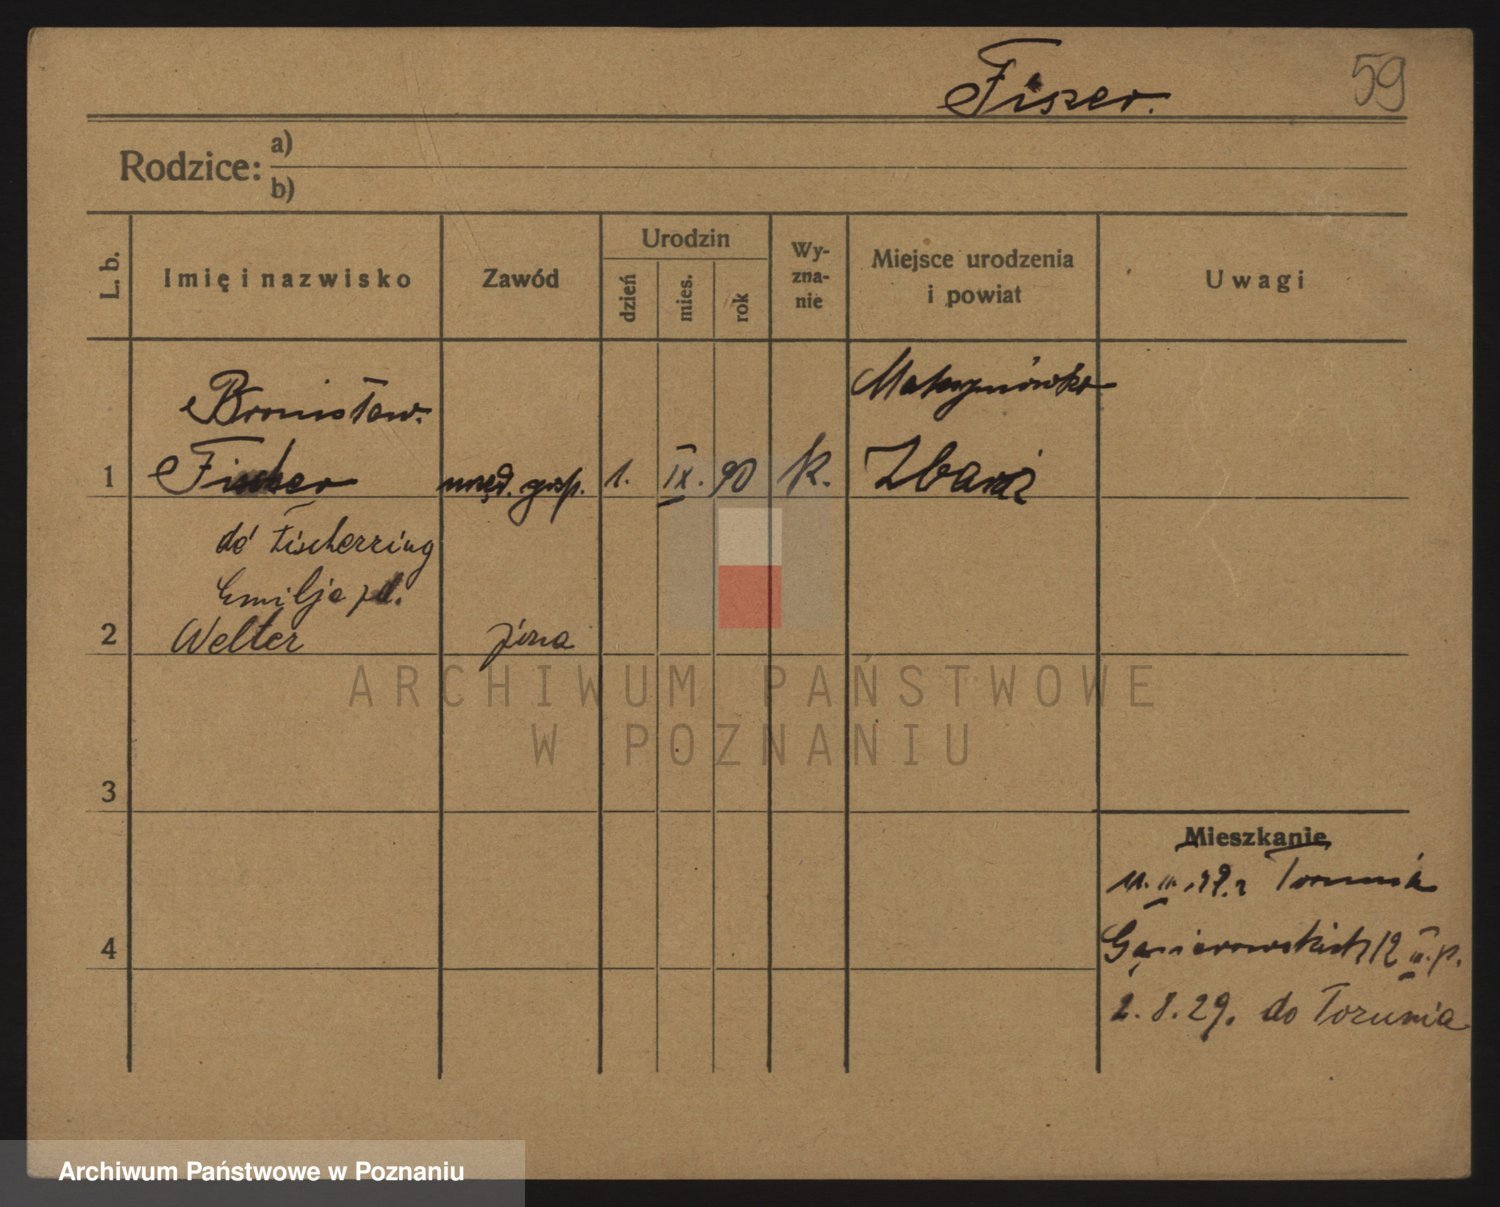 Fiszer.
59
Rodzice:
a)
b)
L. b.
Imię i nazwisko
Zawód
Urodzin
dzień
mies.
rok
Wy-
zna-
nie
Miejsce urodzenia
i powiat
Uwagi
Bronisław
Maksymówka
1
urzęd. gosp.
1.
IX.
90
k.
Zbaraż
de Fischerring
Emilja
2
Welter
żona
ARCHIWUM PAŃSTWOWE
W POZNANIU
3
Mieszkanie
Toruniá
4
12 II. p.
2. 8. 29. do Torunia
Archiwum Państwowe w Poznaniu